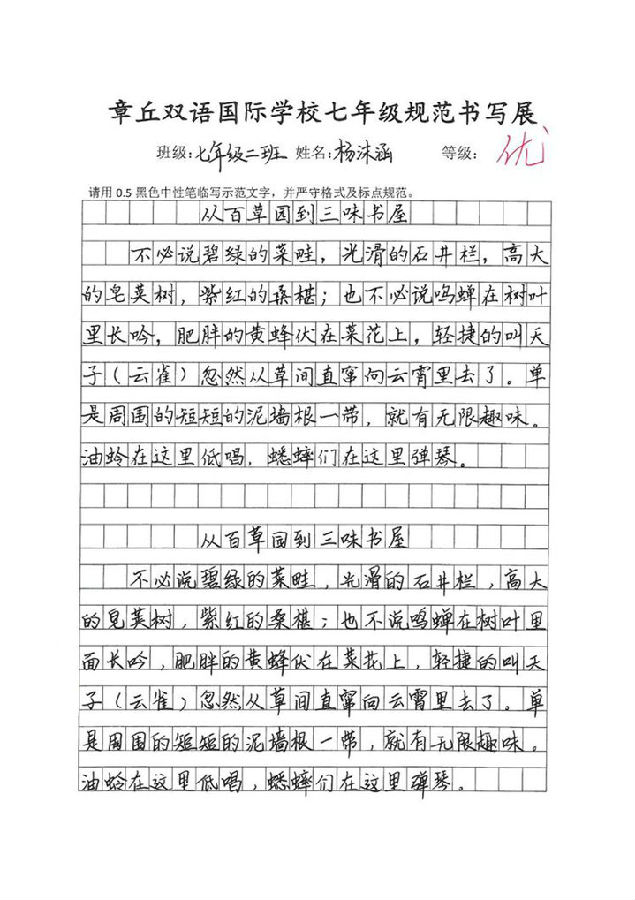 章丘双语国际学校七年级规范书写展
班级：七年级二班 姓名：杨沫涵 等级：优
请用 0.5 黑色中性笔临写示范文字，并严守格式及标点规范。
从百草园到三味书屋
不必说碧绿的菜畦，光滑的石井栏，高大
的皂荚树，紫红的桑椹；也不必说鸣蝉在树叶
里长吟，肥胖的黄蜂伏在菜花上，轻捷的叫天
子（云雀）忽然从草间直窜向云霄里去了。单
是周围的短短的泥墙根一带，就有无限趣味。
油蛉在这里低唱，蟋蟀们在这里弹琴。
从百草园到三味书屋
不必说碧绿的菜畦，光滑的石井栏，高大
的皂荚树，紫红的桑椹；也不说鸣蝉在树叶里
面长吟，肥胖的黄蜂伏在菜花上，轻捷的叫天
子（云雀）忽然从草间直窜向云霄里去了。单
是周围的短短的泥墙根一带，就有无限趣味。
油蛉在这里低唱，蟋蟀们在这里弹琴。